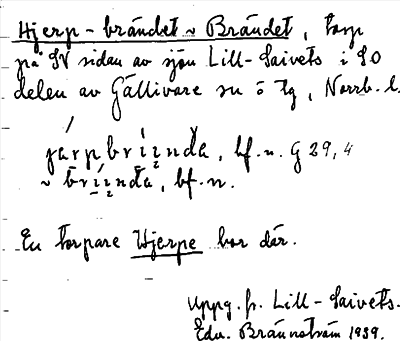 Hjerp-brändet ~ Brändet, torp
på SV sidan av sjön Lill-Saivets i SO
delen av Gällivare sn ö tg, Norrb. l.
järpbrı̣ı̣nda, bf. n. G 29,4
~ brı̣ı̣nda, bf. n.
En torpare Hjerpe bor där.
Uppg. fr. Lill-Saivets.
Edv. Brännström 1939.